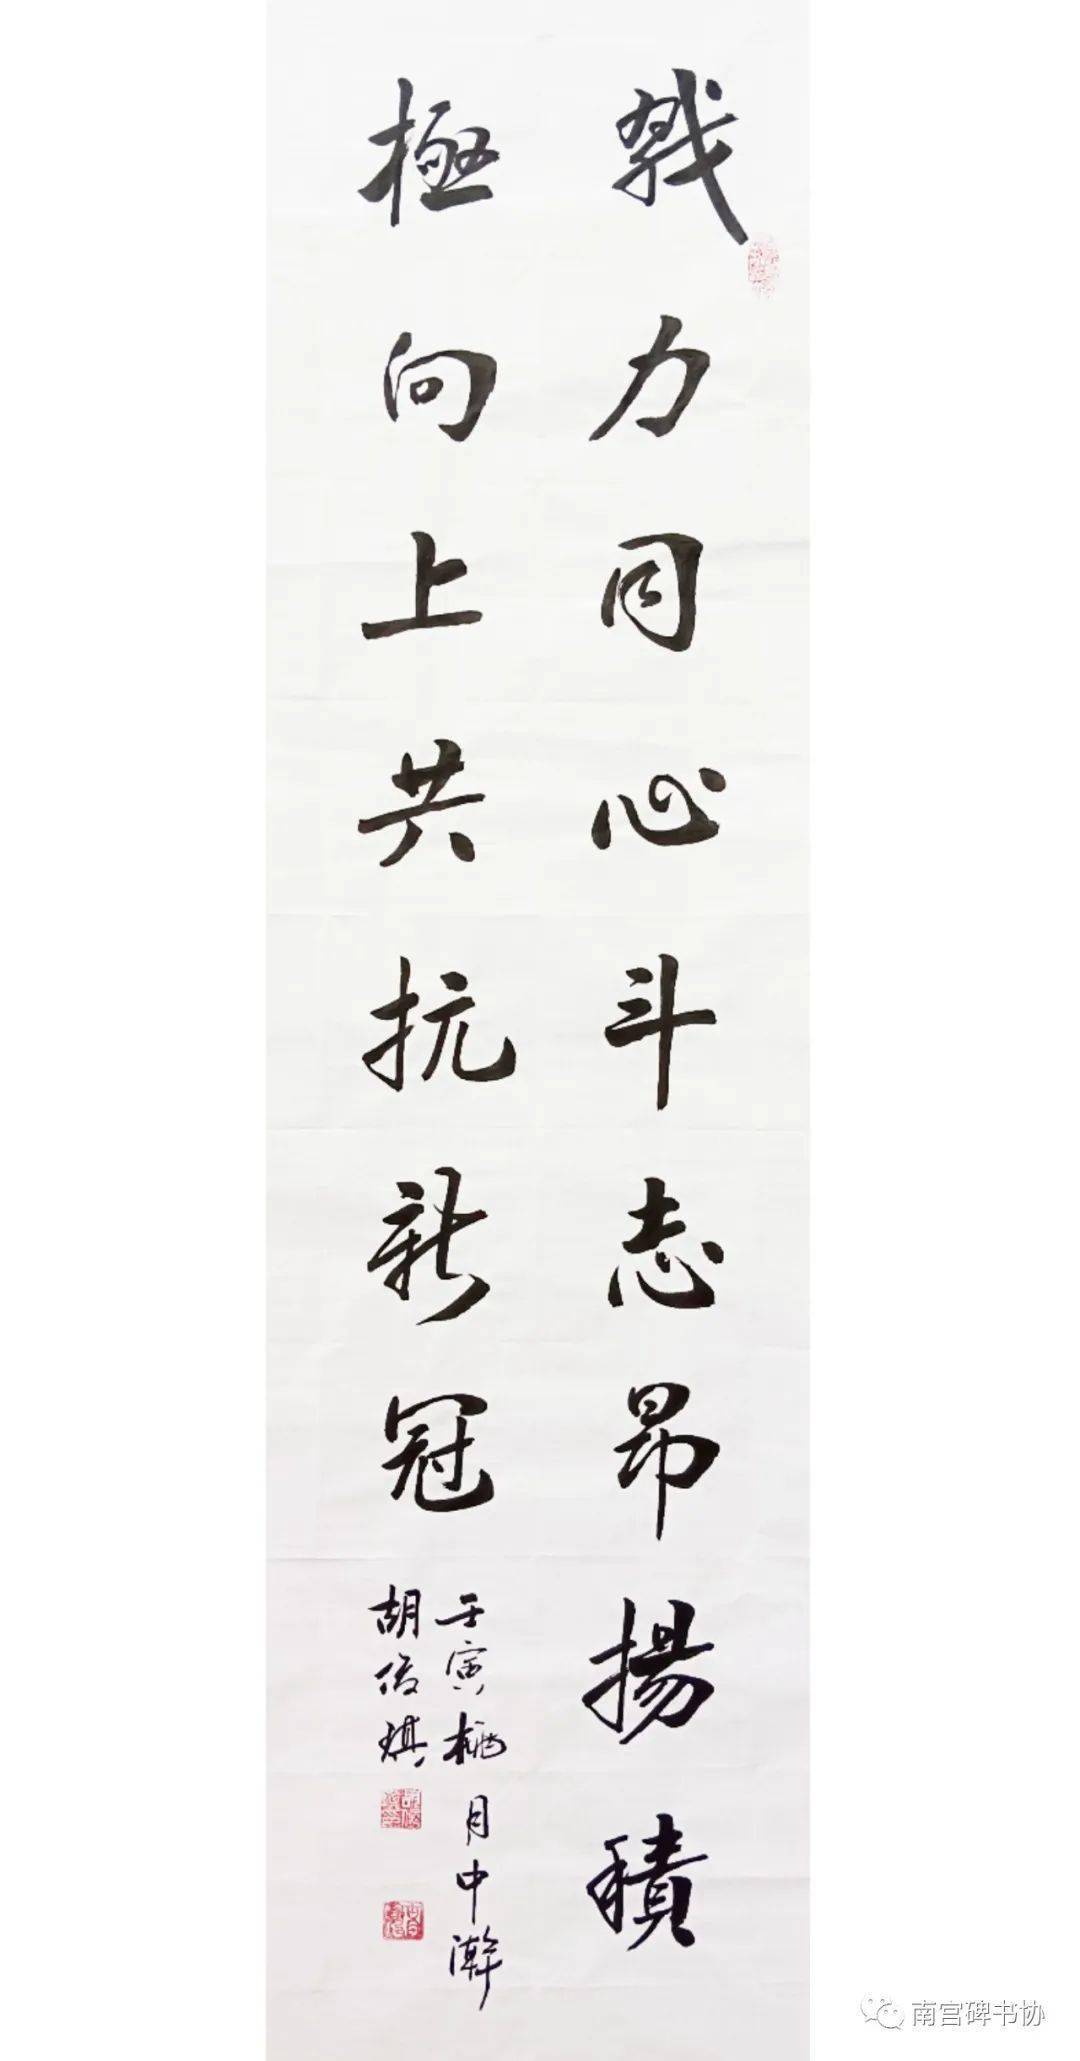 戮力同心斗志昂揚積
極向上共抗新冠
壬寅桃月中澣
胡俊琪
南宫碑书协